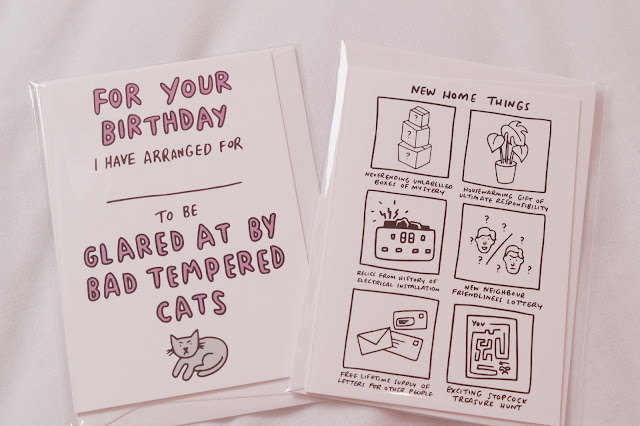 FOR YOUR
BIRTHDAY
I HAVE ARRANGED FOR
TO BE
GLARED AT BY
BAD TEMPERED
CATS
NEW HOME THINGS
? ? ?
NEVERENDING UNLABELLED
BOXES OF MYSTERY
HOUSEWARMING GIFT OF
ULTIMATE RESPONSIBILITY
RELICS FROM HISTORY OF
ELECTRICAL INSTALLATION
? ? ? ? ? ?
NEW NEIGHBOUR
FRIENDLINESS LOTTERY
FREE LIFETIME SUPPLY OF
LETTERS FOR OTHER PEOPLE
YOU
EXCITING STOPCOCK
TREASURE HUNT